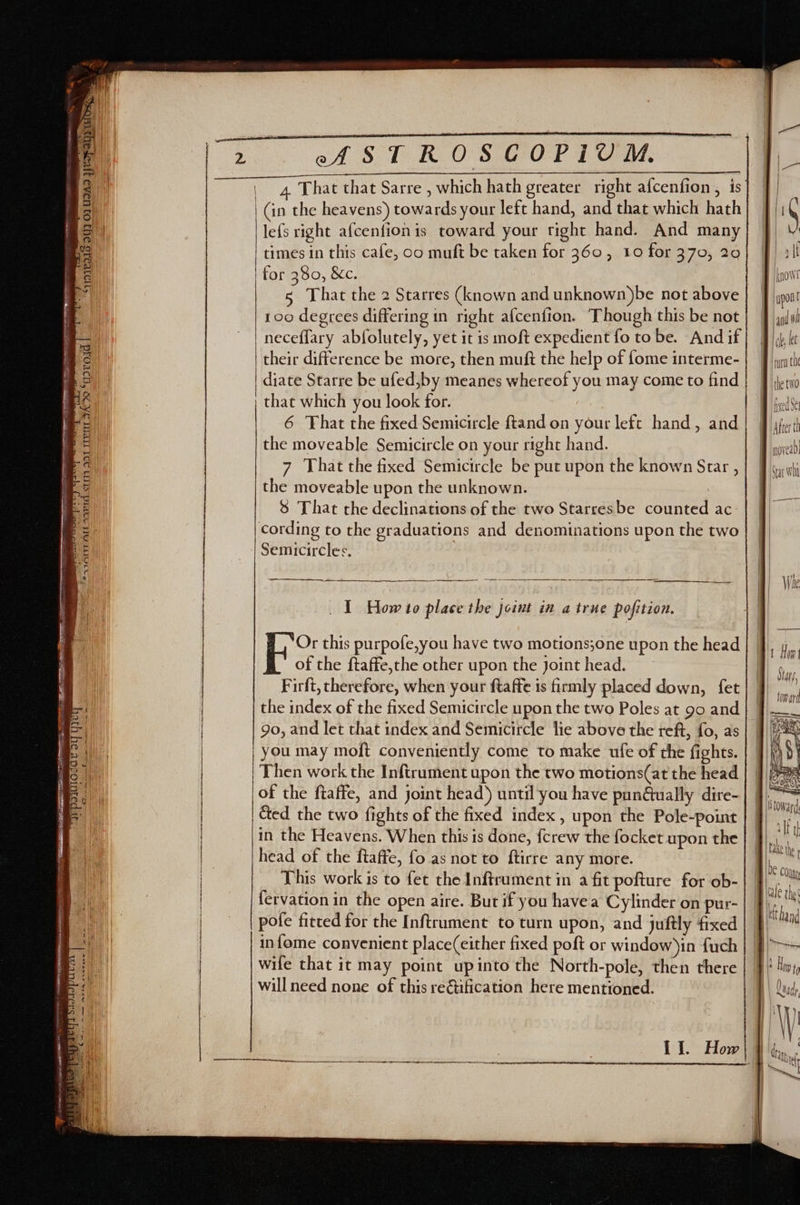 2 ASTROSCOPIUM.
4 That that Sarre, which hath greater right aſcenſion, is
(in the heavens) towards your left hand, and that which hath
leſs right aſcenſion is toward your right hand. And many
times in this caſe, 00 muſt be taken for 360, 10 for 370, 20
for 380, &c.
5 That the 2 Starres (known and unknown)be not above
100 degrees differing in right aſcenſion. Though this be not
neceſſary abſolutely, yet it is moſt expedient ſo to be. And if
their difference be more, then muſt the help of ſome interme-
diate Starre be uſed,by meanes whereof you may come to find
that which you look for.
6 That the fixed Semicircle ſtand on your left hand, and
the moveable Semicircle on your right hand.
7 That the fixed Semicircle be put upon the known Star,
the moveable upon the unknown.
8 That the declinations of the two Starres be counted ac
cording to the graduations and denominations upon the two
Semicircles.
I How to place the joint in a true poſition.
FOr this purpoſe,you have two motions;one upon the head
of the ſtaffe,the other upon the joint head.
Firſt, therefore, when your ſtaffe is firmly placed down, ſet
the index of the fixed Semicircle upon the two Poles at 90 and
90, and let that index and Semicircle lie above the reſt, ſo, as
you may moſt conveniently come to make uſe of the ſights.
Then work the Inſtrument upon the two motions(at the head
of the ſtaffe, and joint head) until you have punctually dire-
cted the two ſights of the fixed index, upon the Pole-point
in the Heavens. When this is done, ſcrew the ſocket upon the
head of the ſtaffe, ſo as not to ſtirre any more.
This work is to ſet the Inſtrument in a fit poſture for ob-
ſervation in the open aire. But if you have a Cylinder on pur-
poſe fitted for the Inſtrument to turn upon, and juſtly fixed
in ſome convenient place(either fixed poſt or window)in ſuch
wiſe that it may point up into the North-pole, then there
will need none of this rectification here mentioned.
II. How